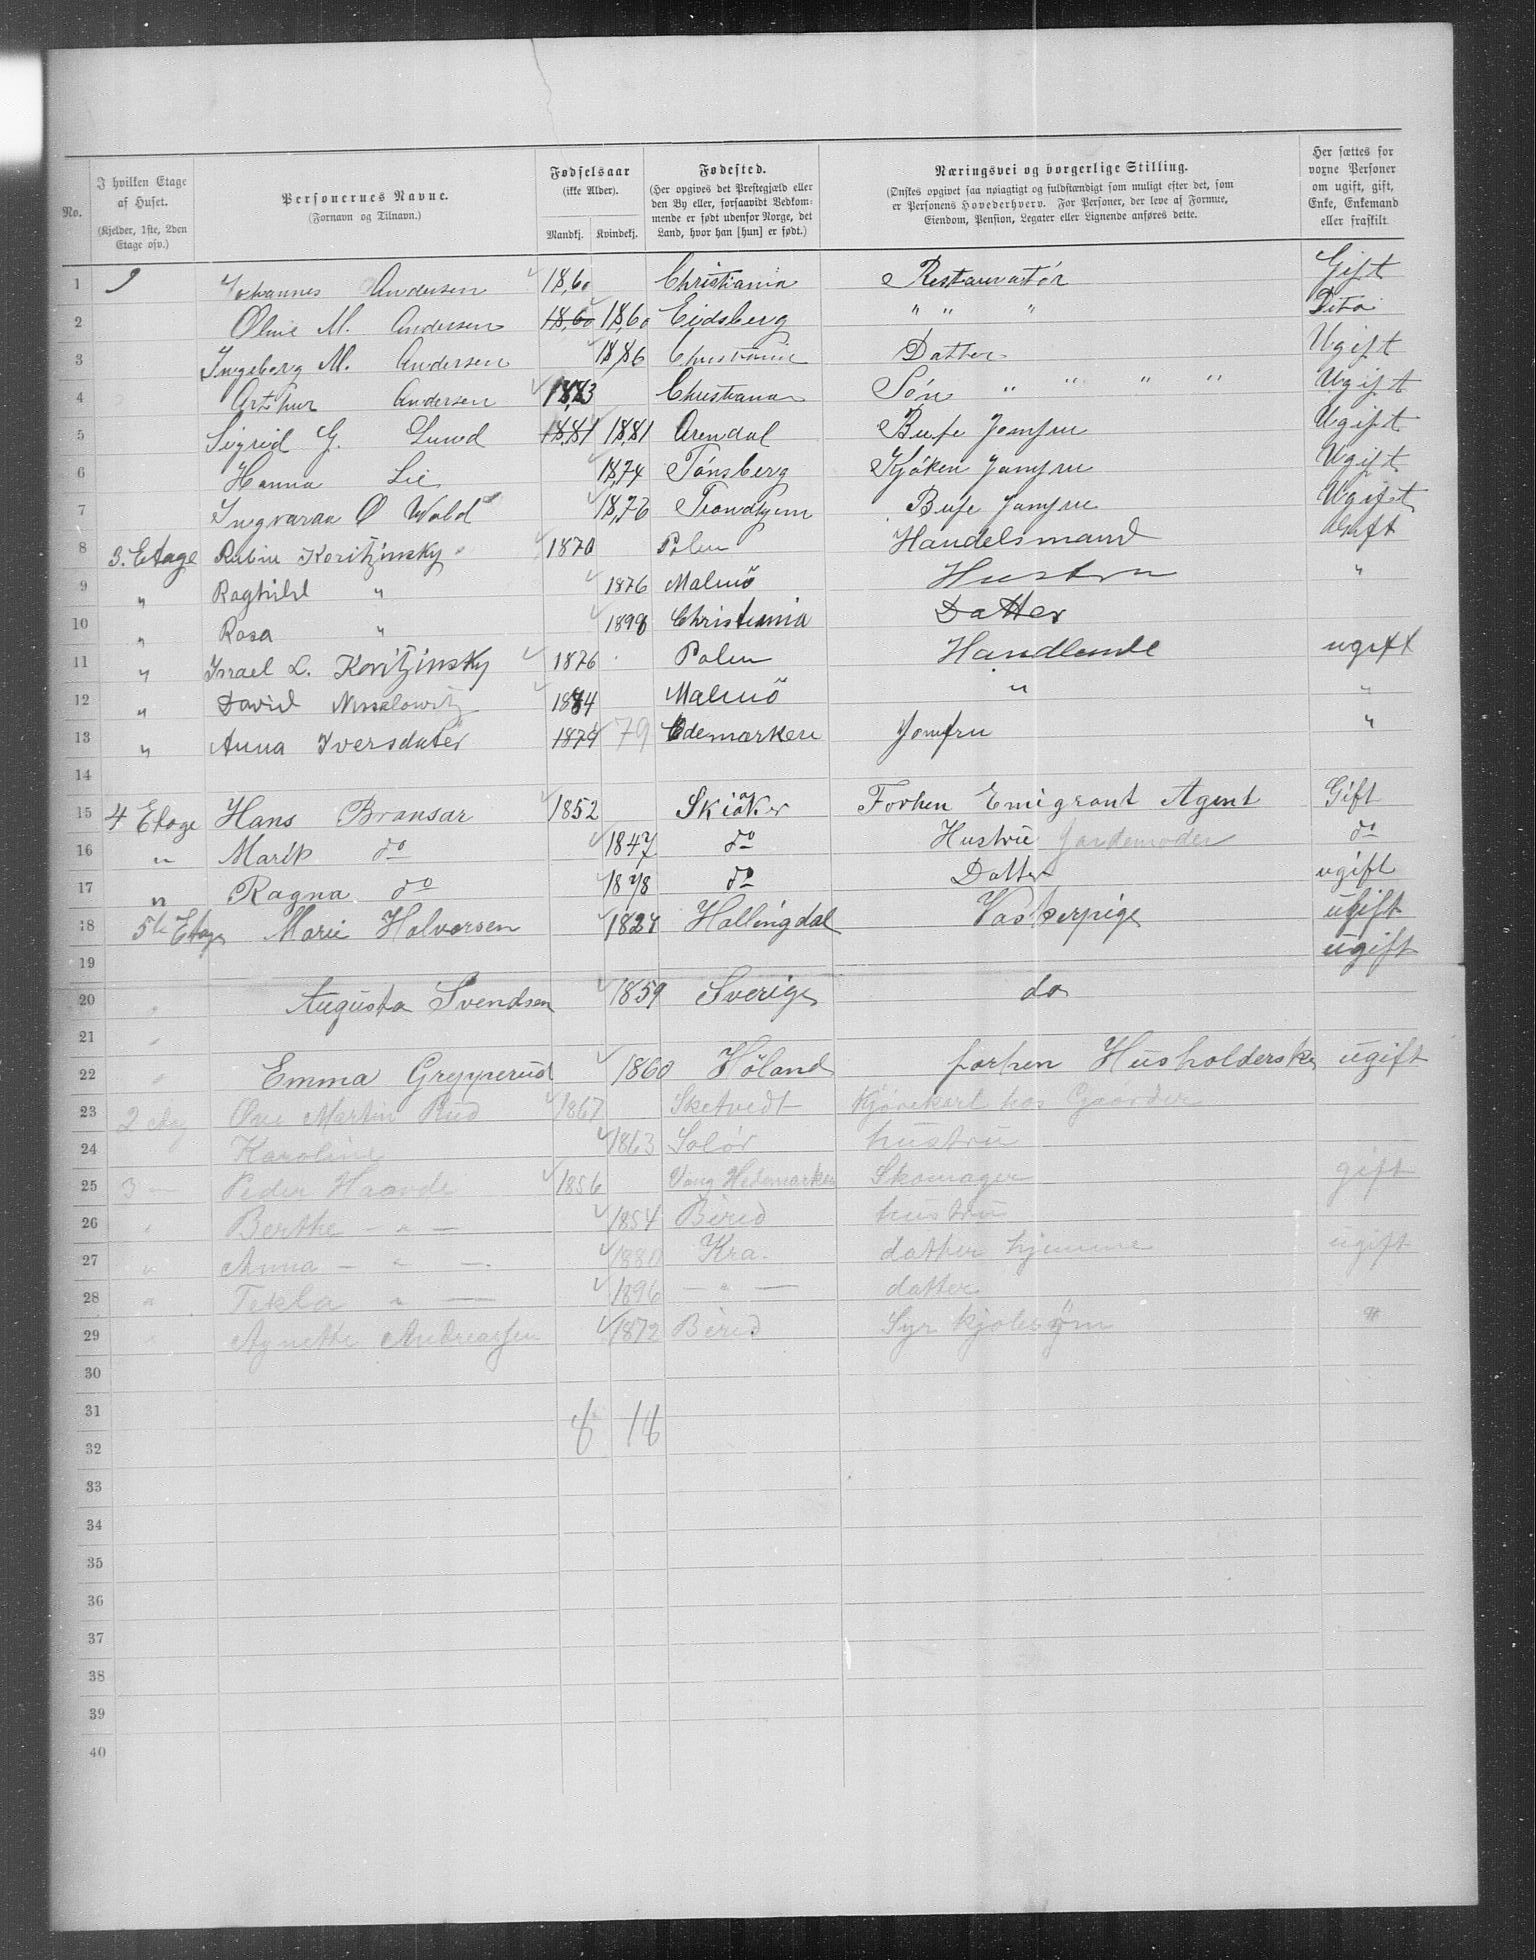 No.
I hvilken Etage af Huset. (Kjelder, 1ste, 2den Etage osv.)
Personernes Navne. (Fornavn og Tilnavn.)
Fødselsaar (ikke Alder). Mandkj. Kvindekj.
Fødested. (Her opgives det Prestegjæld eller den By eller, forsaavidt Vedkommende er født udenfor Norge, det Land, hvor han [hun] er født.)
Næringsvei og borgerlige Stilling. (Ønskes opgivet saa nøiagtigt og fuldstændigt som muligt efter det, som er Personens Hovederhverv. For Personer, der leve af Formue, Eiendom, Pension, Legater eller Lignende anføres dette.)
Her sættes for voxne Personer om ugift, gift, Enke, Enkemand eller fraskilt.
1 Johannes Andersen 1860 Christiania Restauratør Gift
2 Oline M. Andersen 1860 1860 Eidsberg " " " Dito
3 Ingeborg M. Andersen 1886 Christiania Datter Ugift
4 Arthur Andersen 1883 Christiania Søn " " " " Ugift
5 Sigrid G. Lund 1881 1881 Arendal Bufe Jomfru Ugift
6 Hanna Lie 1874 Tønsberg Kjøken Jomfru Ugift
7 Ingvaraa O Wold 1876 Trondhjem Bufe Jomfru Ugift
8 3. Etage Rubin Koritzinsky 1870 Polen Handelsmand Gift
9 " Raghild " 1876 Malmö Hustru "
10 " Rosa " 1898 Christiania Datter
11 " Israel L. Koritzinsky 1876 Polen Handlende ugift
12 " David Nissalowitz 1884 Malmö " "
13 " Anna Iversdater 1879 79 Edemarken Jomfru "
14
15 4 Etage Hans Bransar 1852 Skiaker Forhen Emigrant Agent Gift
16 " Marit do 1847 do Hustru Jordemoder do
17 " Ragna do 1878 do Datter ugift
18 5te Etage Marie Halvorsen 1824 Hallingdal Vaskerpige ugift
19 ugift
20 " Augusta Svendsen 1859 Sverige do
21 "
22 " Emma Grepperud 1860 Höland forhen Husholderske ugift
23 2 Martin Rud 1867 Sketvedt Kjørekarl hos Gaarder
24 Karoline 1863 Solør hustru
25 3 — Peder Haavde 1856 Vang Hedemarken Skomager gift
26 " Berthe — " — 1854 Birid hustru
27 " Anna — " — 1880 Kra. datter hjemme ugift
28 " Tekla " — 1896 — " — datter
29 " Agnethe Andreassen 1872 Birid Syr kjolesøm "
30
31 8 18
32
33
34
35
36
37
38
39
40